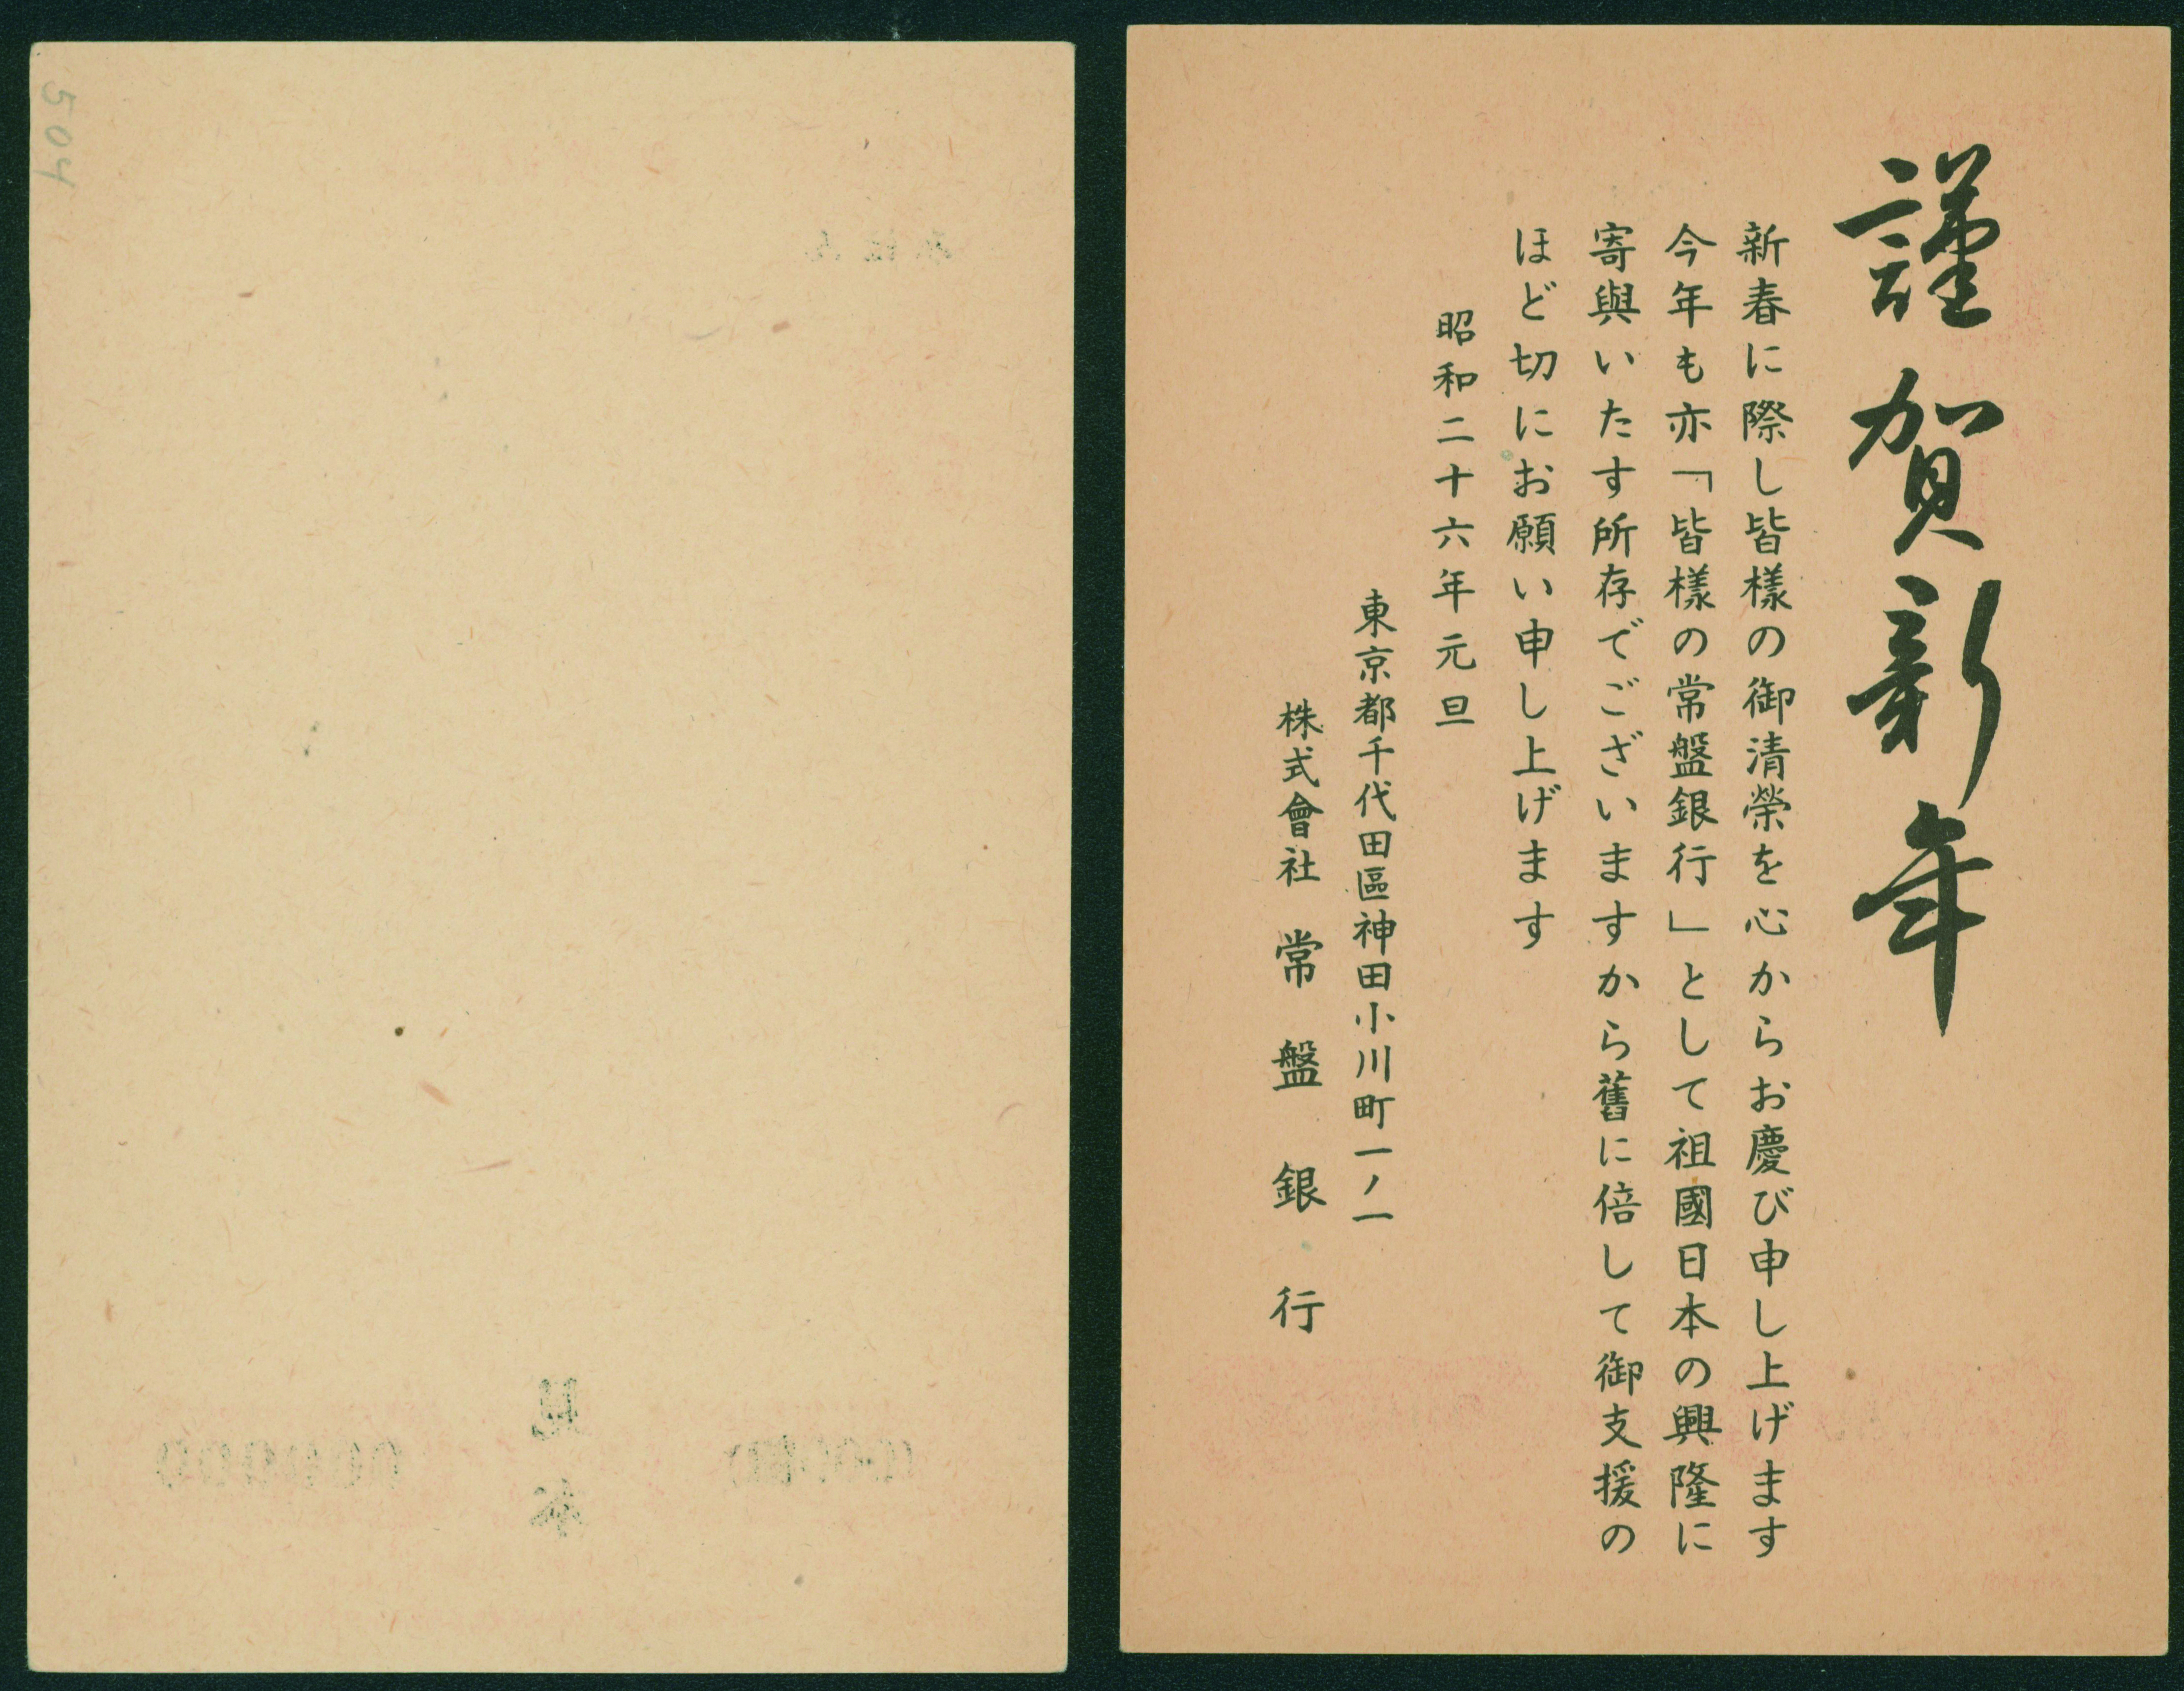 謹賀新年
新春に際し皆樣の御清榮を心からお慶び申し上げます
今年も亦「皆樣の常盤銀行」として祖國日本の興隆に
寄與いたす所存でございますから舊に倍して御支援の
ほど切にお願い申し上げます
昭和二十六年元旦
東京都千代田區神田小川町一ノ一
株式會社常盤銀行
504
見本